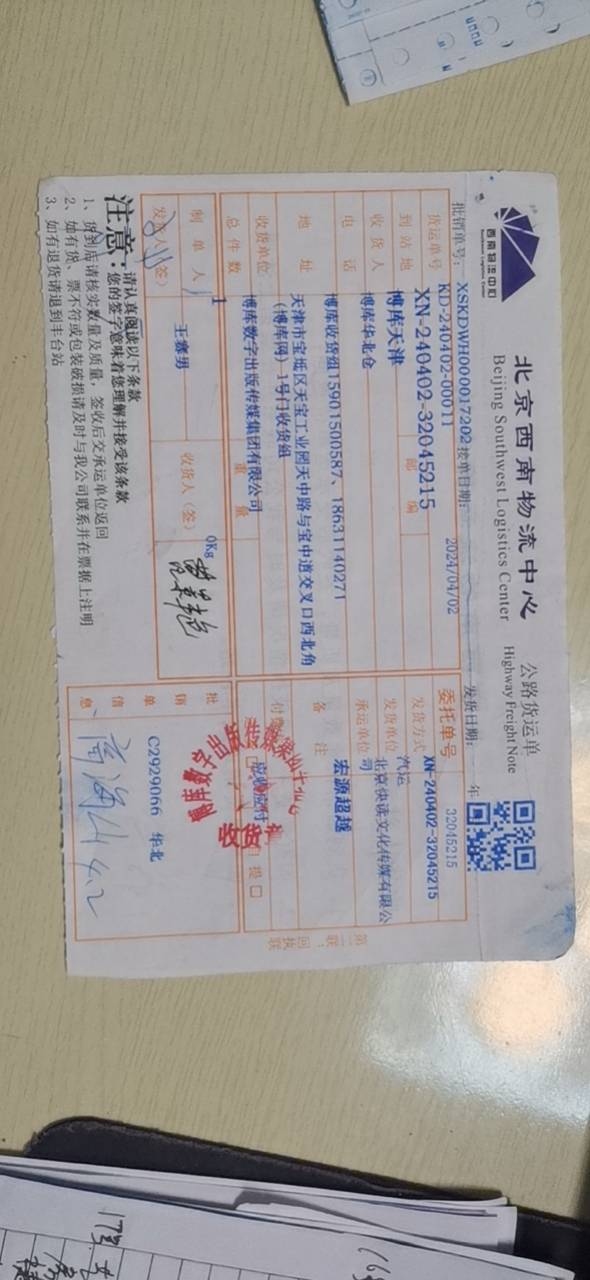 西南物流中心
Southwest Logistics Center
北京西南物流中心
Beijing Southwest Logistics Center
公路货运单
Highway Freight Note
批销单号：XSKDWH000017202 接单日期：2024/04/02 发货日期： 年
货运单号 KD-240402-00011
XN-240402-32045215
委托单号 32045215
XN-240402-32045215
到站地 博库天津 邮编
发货方式 汽运
收货人 博库华北仓
发货单位 北京快读文化传媒有限公司
电话 博库收货组15901500587、18631140271
承运单位 宏源超越
地址 天津市宝坻区天宝工业园天中路与宝中道交叉口西北角（博库网）1号门收货组
备注
收货单位 博库数字出版传媒集团有限公司
总件数 1 重量 0Kg
制单人 王赛男
发货人(签)
收货人(签)
批销单信息 C2929066 华北
4.2
第二联：回执联
注意：请认真阅读以下条款
您的签字意味着您理解并接受该条款
1、货到后请核实数量及质量，签收后交承运单位返回
2、如有货、票不符或包装破损请及时与我公司联系并在票据上注明
3、如有退货请退到丰台站